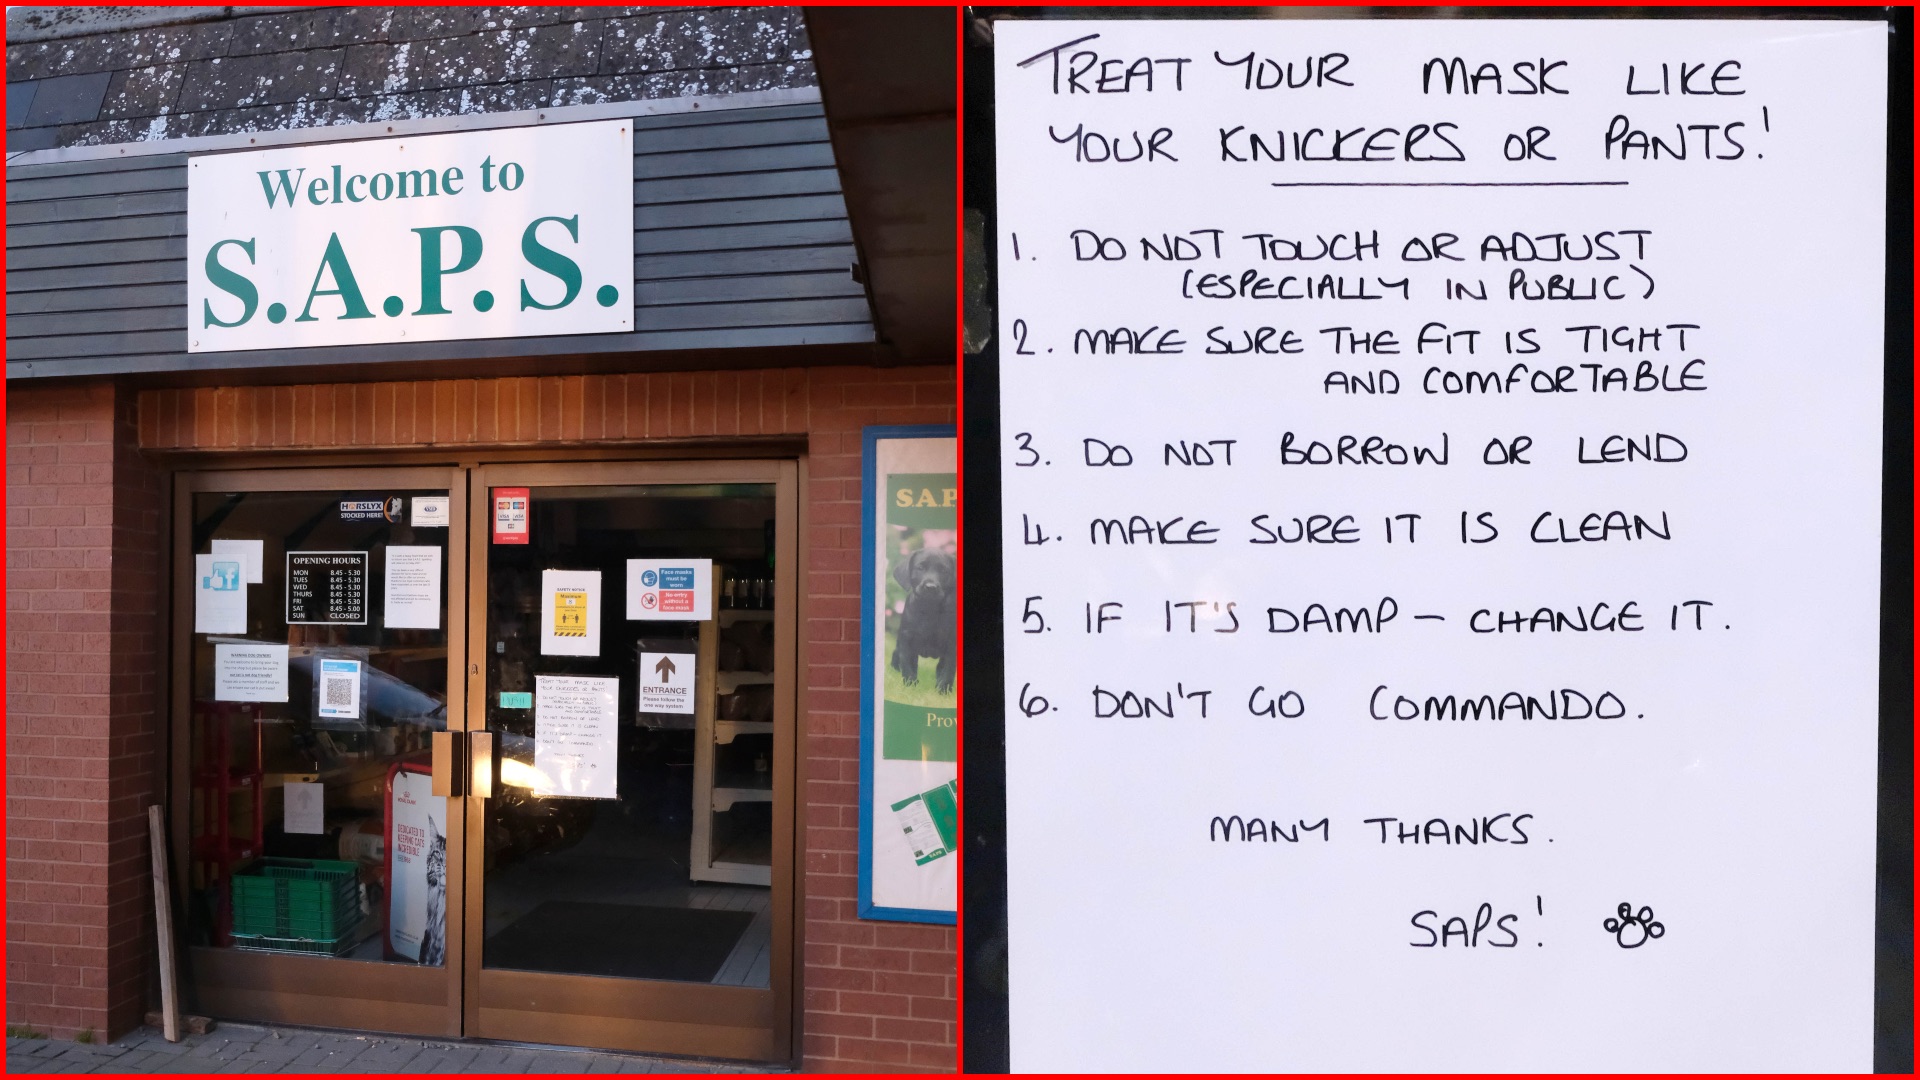 Welcome to
S.A.P.S.
HORSLYX
STOCKED HERE!
OPENING HOURS
MON 8.45 - 5.30
TUES 8.45 - 5.30
WED 8.45 - 5.30
THURS 8.45 - 5.30
FRI 8.45 - 5.30
SAT 8.45 - 5.00
SUN CLOSED
SAFETY NOTICE
Face masks
must be
worn
No entry
without a
face mask
ENTRANCE
Please follow the
one way system
TREAT YOUR MASK LIKE
YOUR KNICKERS OR PANTS
OPEN
ROYAL CANIN
DEDICATED TO
KEEPING CATS
INCREDIBLE
S.A.P
Pro
TREAT YOUR MASK LIKE
YOUR KNICKERS OR PANTS!
1. DO NOT TOUCH OR ADJUST
(ESPECIALLY IN PUBLIC)
2. MAKE SURE THE FIT IS TIGHT
AND COMFORTABLE
3. DO NOT BORROW OR LEND
4. MAKE SURE IT IS CLEAN
5. IF IT'S DAMP - CHANGE IT.
6. DON'T GO COMMANDO.
MANY THANKS.
SAPS!